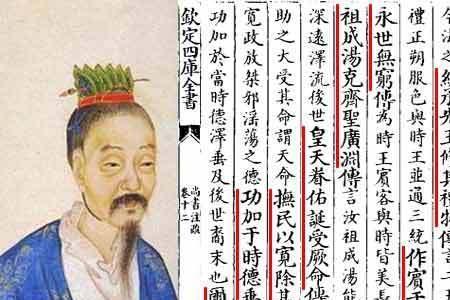 統承先王修其禮物傳言二
禮正朔服色與時王並通三統作賓王
永世無窮傳為時王賓客與時皆美長
祖成湯克齊聖廣淵傳言汝祖成湯能
深遠澤流後世皇天眷佑誕受厥命傳
助之大受其命謂天命撫民以寬除其
寬政放桀邪淫蕩之德功加于時德垂
功加於當時德澤垂及後世裔末也爾
欽定四庫全書
尚書注疏
卷十二